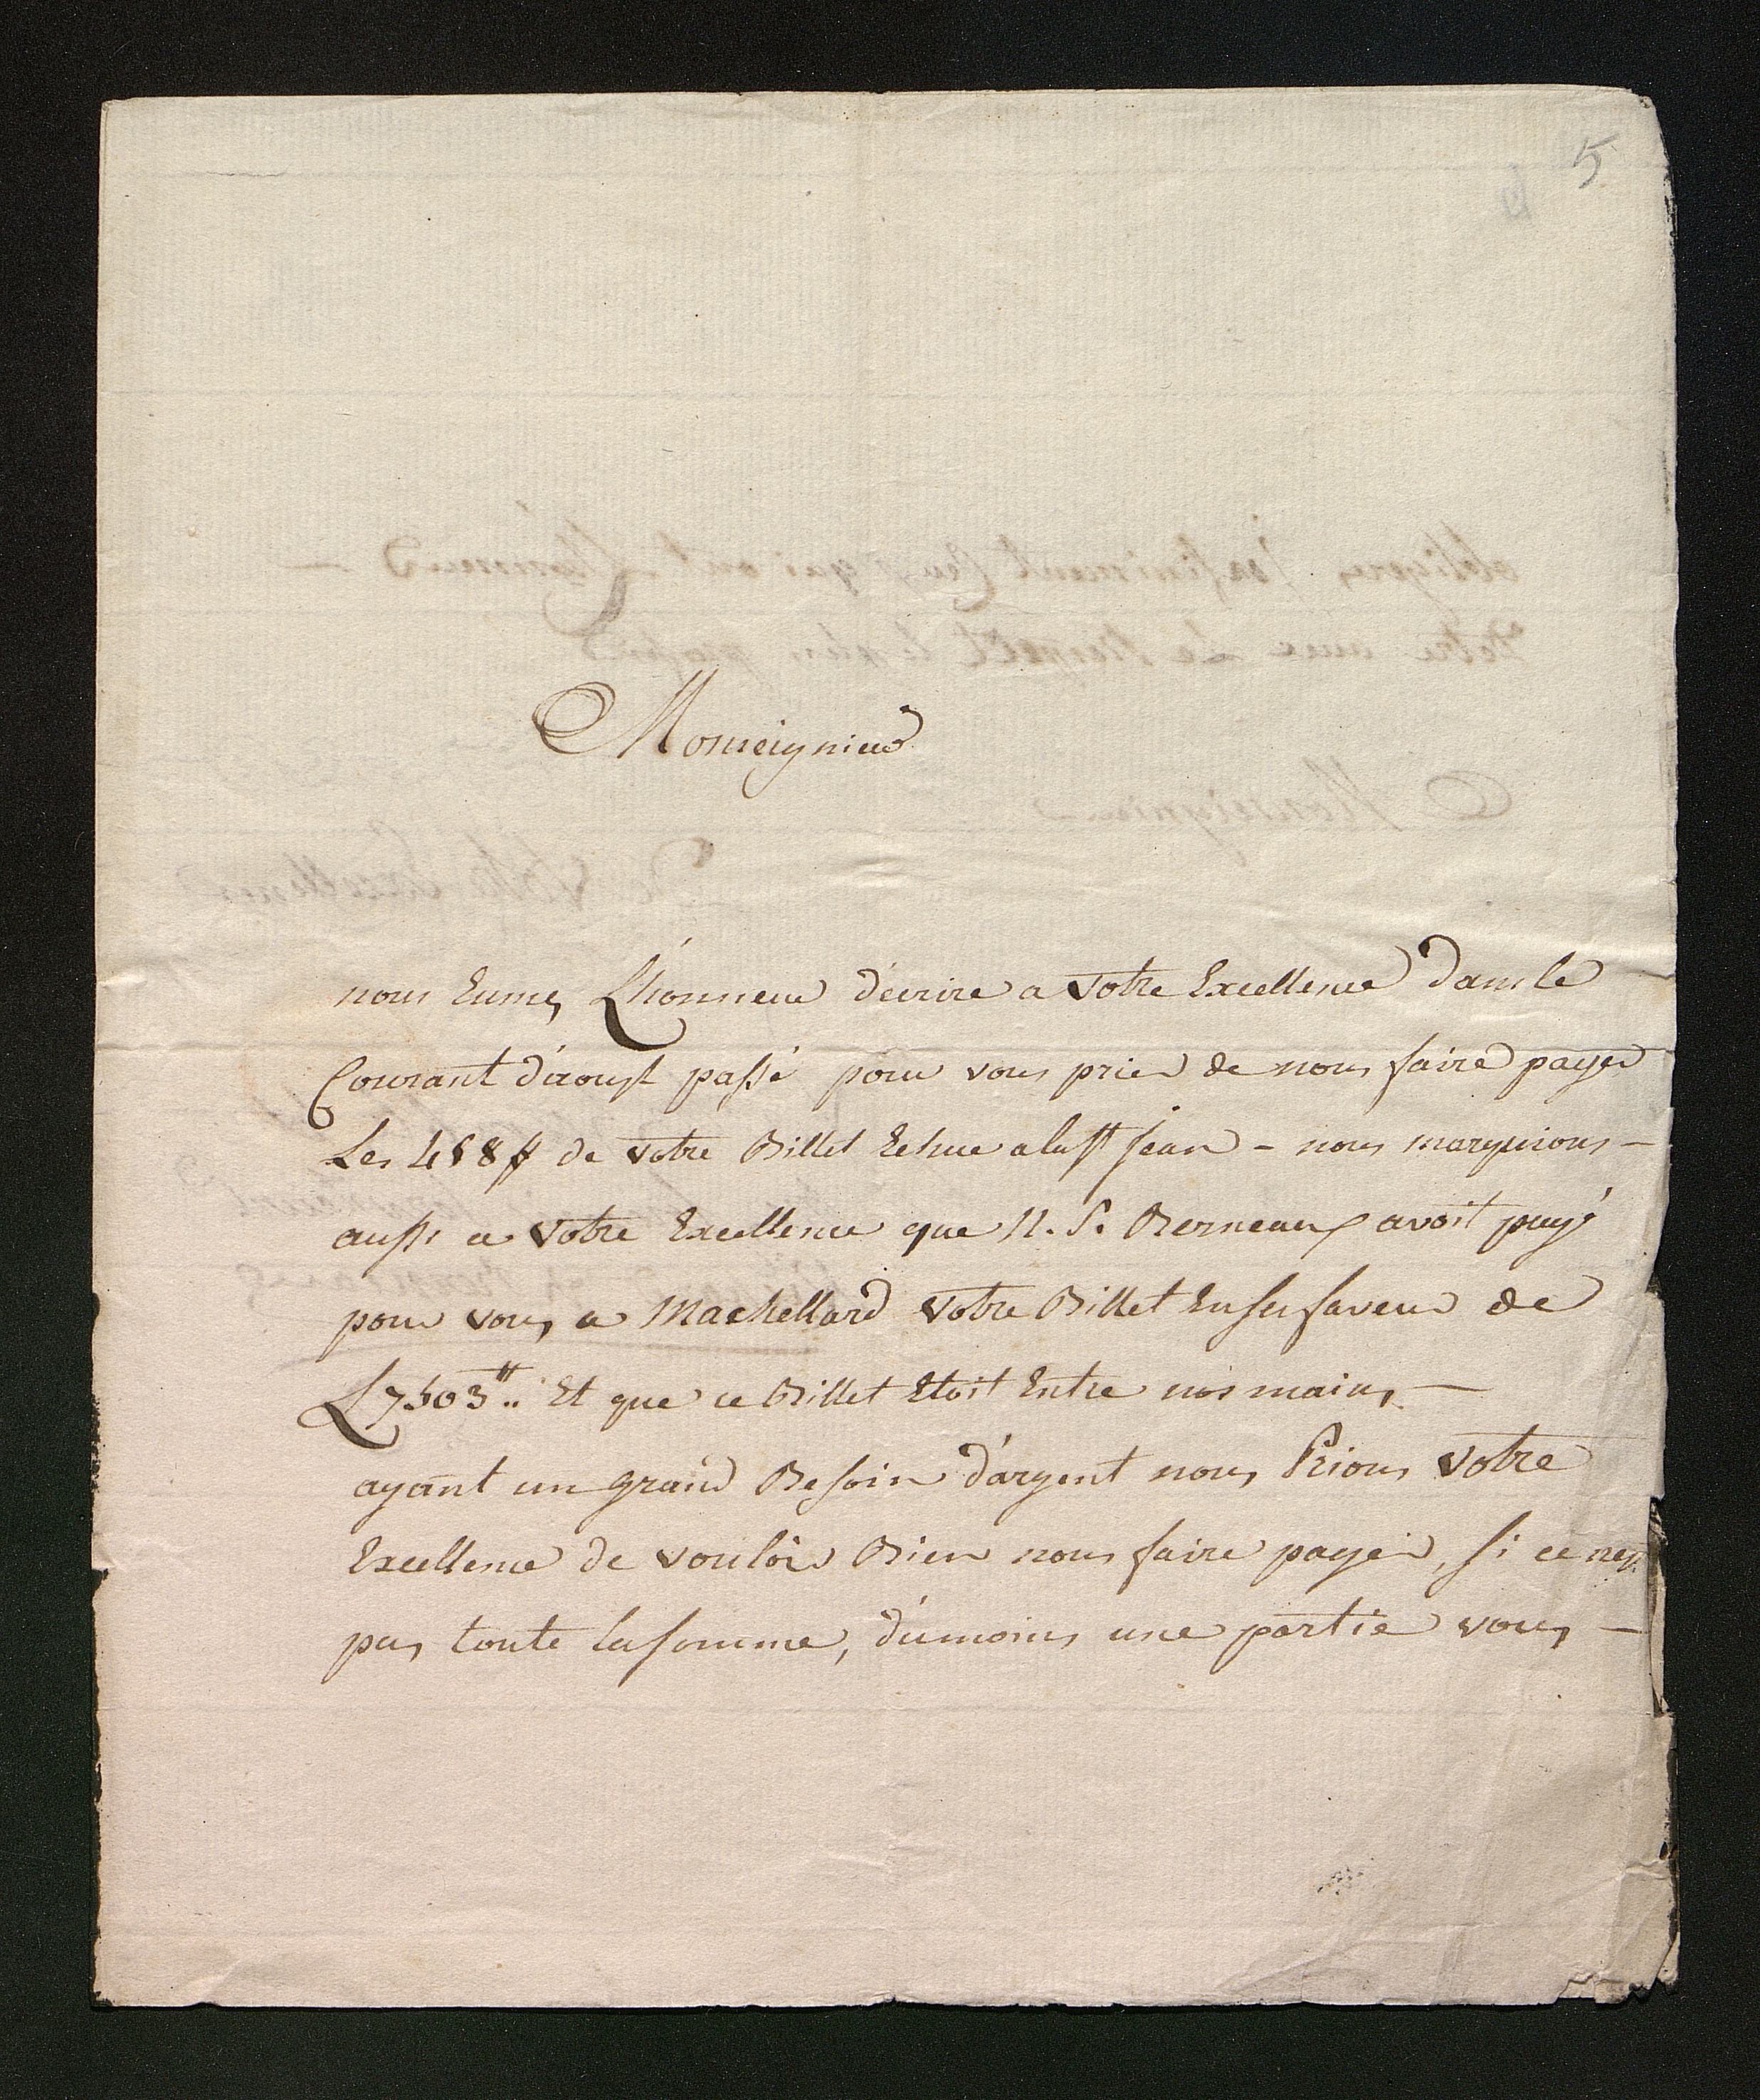 5
Monseignieur
nous Eumes L'honneur d'écrire a votre Excellence dans le
Courant d'aoust passé pour vous prier de nous faire payer
Les 458# de votre Billet Echue a la St Jean - nous marquions -
aussi a votre Excellence que N. S. Berneaux avoit payé
pour vous a Machellard votre Billet En sa faveur de
L7503#.. Et que ce Billet Etoit Entre nos mains, -
ayant un grand Besoin d'argent nous Prions votre
Excellence de vouloir Bien nous faire payer, si ce nest
pas toute la somme, dumoins une partie vous -